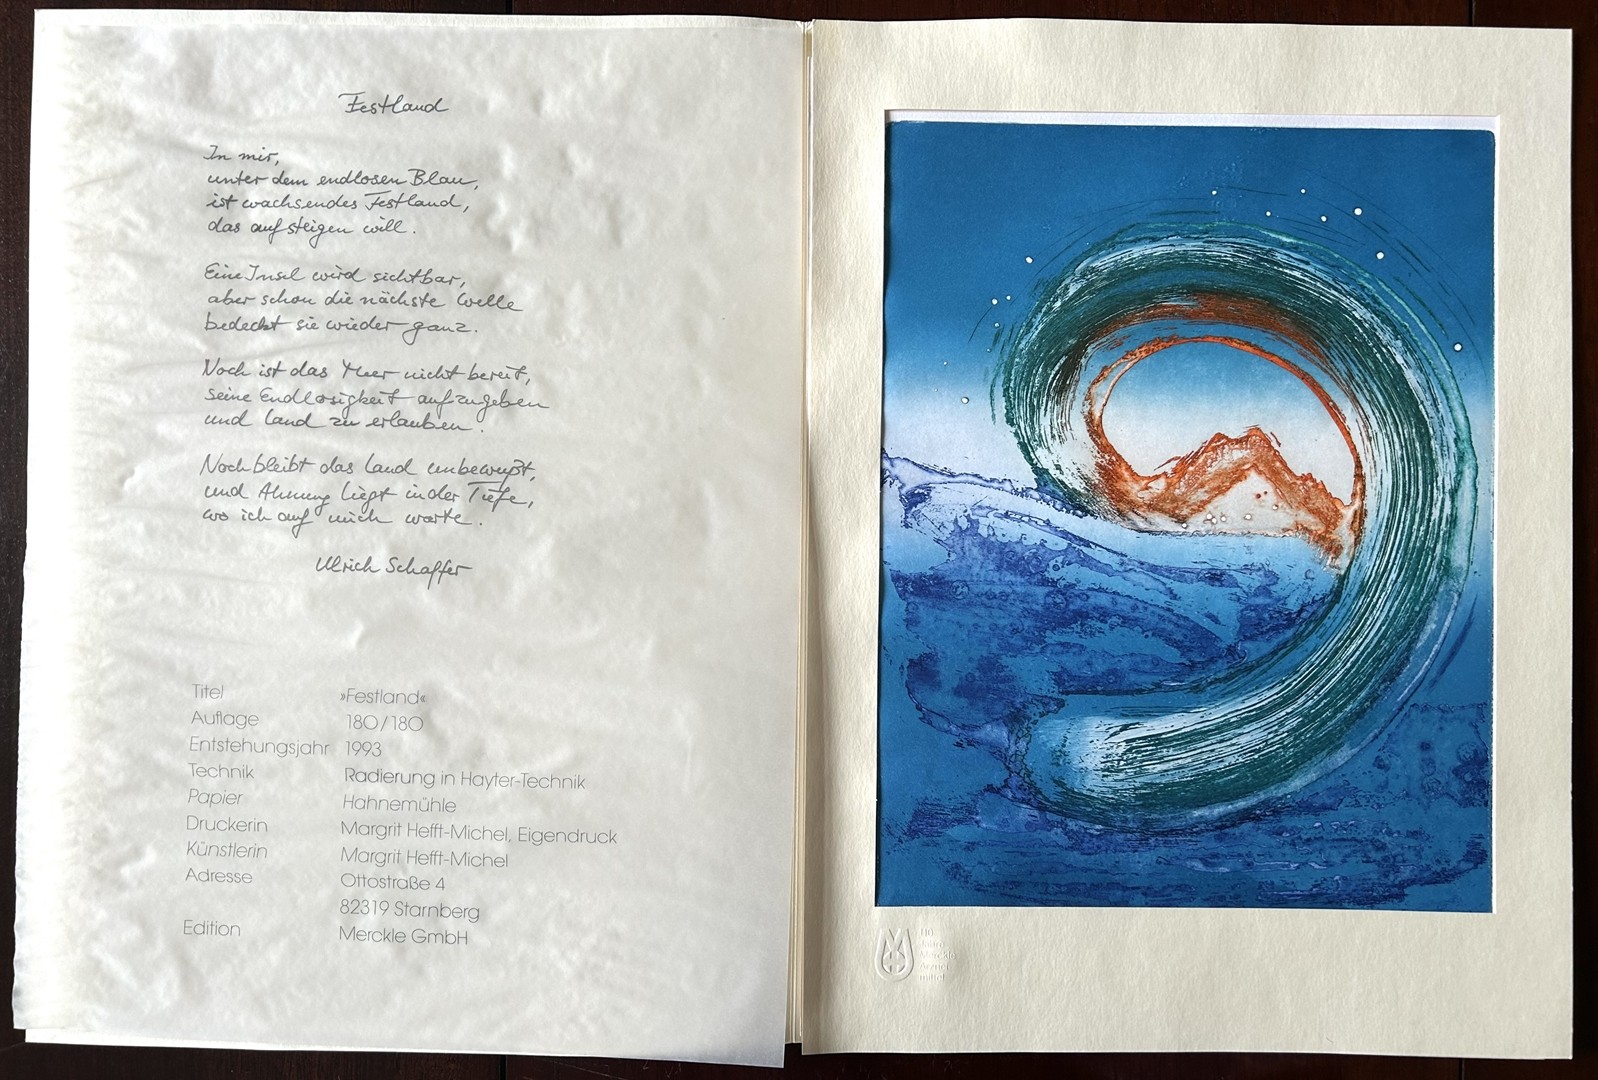 Festland
In mir,
unter dem endlosen Blau,
ist wachsendes Festland,
das aufsteigen will.
Eine Insel wird sichtbar,
aber schon die nächste Welle
bedeckt sie wieder ganz.
Noch ist das Meer nicht bereit,
seine Endlosigkeit aufzugeben
und Land zu erlauben.
Noch bleibt das Land unbewußt,
und Ahnung liegt in der Tiefe,
wo ich auf mich warte.
Ulrich Schaffer
Titel »Festland«
Auflage 180/180
Entstehungsjahr 1993
Technik Radierung in Hayter-Technik
Papier Hahnemühle
Druckerin Margrit Hefft-Michel, Eigendruck
Künstlerin Margrit Hefft-Michel
Adresse Ottostraße 4
82319 Starnberg
Edition Merckle GmbH
110
Jahre
Merckle
Arznei
mittel